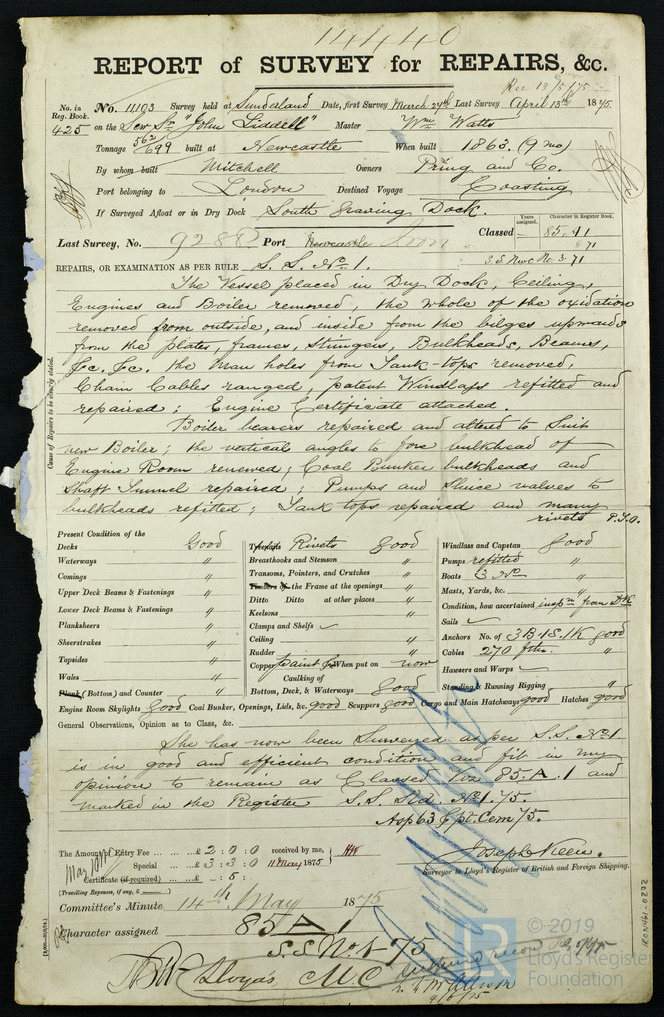 14440
REPORT of SURVEY for REPAIRS, &c.
Rec 13/5/75
No. in Reg. Book. No. 11193 Survey held at Sunderland Date, first Survey March 24th Last Survey April 13th 1875
425 on the Scw Sr "John Liddell" Master Wm Watts
Tonnage 562/699 built at Newcastle When built 1863. (9 mo)
By whom built Mitchell Owners Pring and Co.
Port belonging to London Destined Voyage Coasting
If Surveyed Afloat or in Dry Dock South Graving Dock.
Years assigned. Character in Register Book.
Last Survey, No. 9288 Port Newcastle Iron Classed 85.A1
8 71
REPAIRS, OR EXAMINATION AS PER RULE S. S. No 1. S.S. Nwc No 3. 71
The Vessel placed in Dry Dock, Ceiling,
Engines and Boiler removed, the whole of the oxidation
removed from outside, and inside from the bilges upwards
from the plates, frames, Stringers, Bulkheads, Beams,
&c. &c. the man holes from Tank-tops removed,
Chain Cables ranged, patent Windlass refitted and
repaired; Engine Certificate attached.
Boiler bearers repaired and altered to Suit
new Boiler; the vertical angles to fore bulkhead of
Engine Room renewed; Coal Bunker bulkheads and
Shaft Tunnel repaired; Pumps and Sluice valves to
bulkheads refitted; Tank tops repaired and many
rivets P.T.O.
Cause of Repairs to be clearly stated.
Present Condition of the
Decks Good
Waterways "
Comings "
Upper Deck Beams & Fastenings "
Lower Deck Beams & Fastenings "
Planksheers "
Sheerstrakes "
Topsides "
Wales "
Plank (Bottom) and Counter "
Treenails Rivets Good
Breasthooks and Stemson "
Transoms, Pointers, and Crutches "
Timbers of the Frame at the openings "
Ditto Ditto at other places "
Keelsons "
Clamps and Shelfs ✓
Ceiling "
Rudder "
Copper Paint When put on now
Caulking of
Bottom, Deck, & Waterways Good
Windlass and Capstan Good
Pumps refitted "
Boats 3 No "
Masts, Yards, &c. "
Condition, how ascertained inspn from Dk
Sails ✓
Anchors No. of 3B.1S.1K good
Cables 270 fthm. "
Hawsers and Warps ✓
Standing & Running Rigging "
Engine Room Skylights Good Coal Bunker, Openings, Lids, &c. good Scuppers good Cargo and Main Hatchways good Hatches good
General Observations, Opinion as to Class, &c.
She has now been Surveyed as per S.S. No 1
is in good and efficient condition and fit in my
opinion to remain as Classed Viz 85.A.1 and
marked in the Register S.S. Sld. No 1. 75.
The Amount Entry Fee ... £ 2 : 0 : 0 received by me,
Special ... £ 3 : 3 : 0 11 May 1875
Certificate (if required) ... : 5 :
(Travelling Expenses, if any, £ )
Joseph Keen.
Surveyor to Lloyd's Register of British and Foreign Shipping.
Committee's Minute 14th May 1875
Character assigned 85 A 1
S.S No 1-75
Lloyds, M C
4/6/75
IRON461-0272
© 2019
Lloyd's Register
Foundation
LR